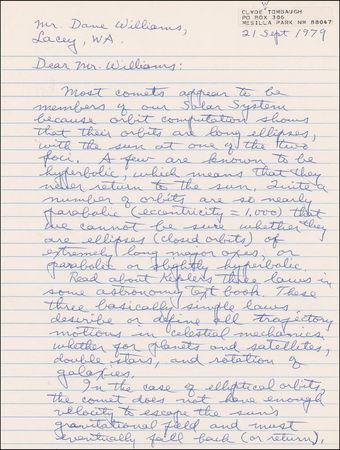 CLYDE TOMBAUGH
PO BOX 306
MESILLA PARK NM 88047
21 Sept 1979
Mr. Dane Williams,
Lacey, WA.
Dear Mr. Williams:
Most comets appear to be
members of our Solar System
because orbit computation shows
that their orbits are long ellipses,
with the sun at one of the two
foci. A few are known to be
hyperbolic, which means that they
never return to the sun. Quite a
number of orbits are so nearly
parabolic (eccentricity = 1.000) that
we cannot be sure whether they
are ellipses (closed orbits) of
extremely long major axes, or
parabolic or slightly hyperbolic.
Read about Keplers three laws in
some astronomy text book. These
three basically simple laws
describe or define all trajectory
motions in celestial mechanics,
whether for planets and satellites,
double stars, and rotation of
galaxies.
In the case of elliptical orbits,
the comet does not have enough
velocity to escape the sun's
gravitational field and must
eventually fall back (or return).